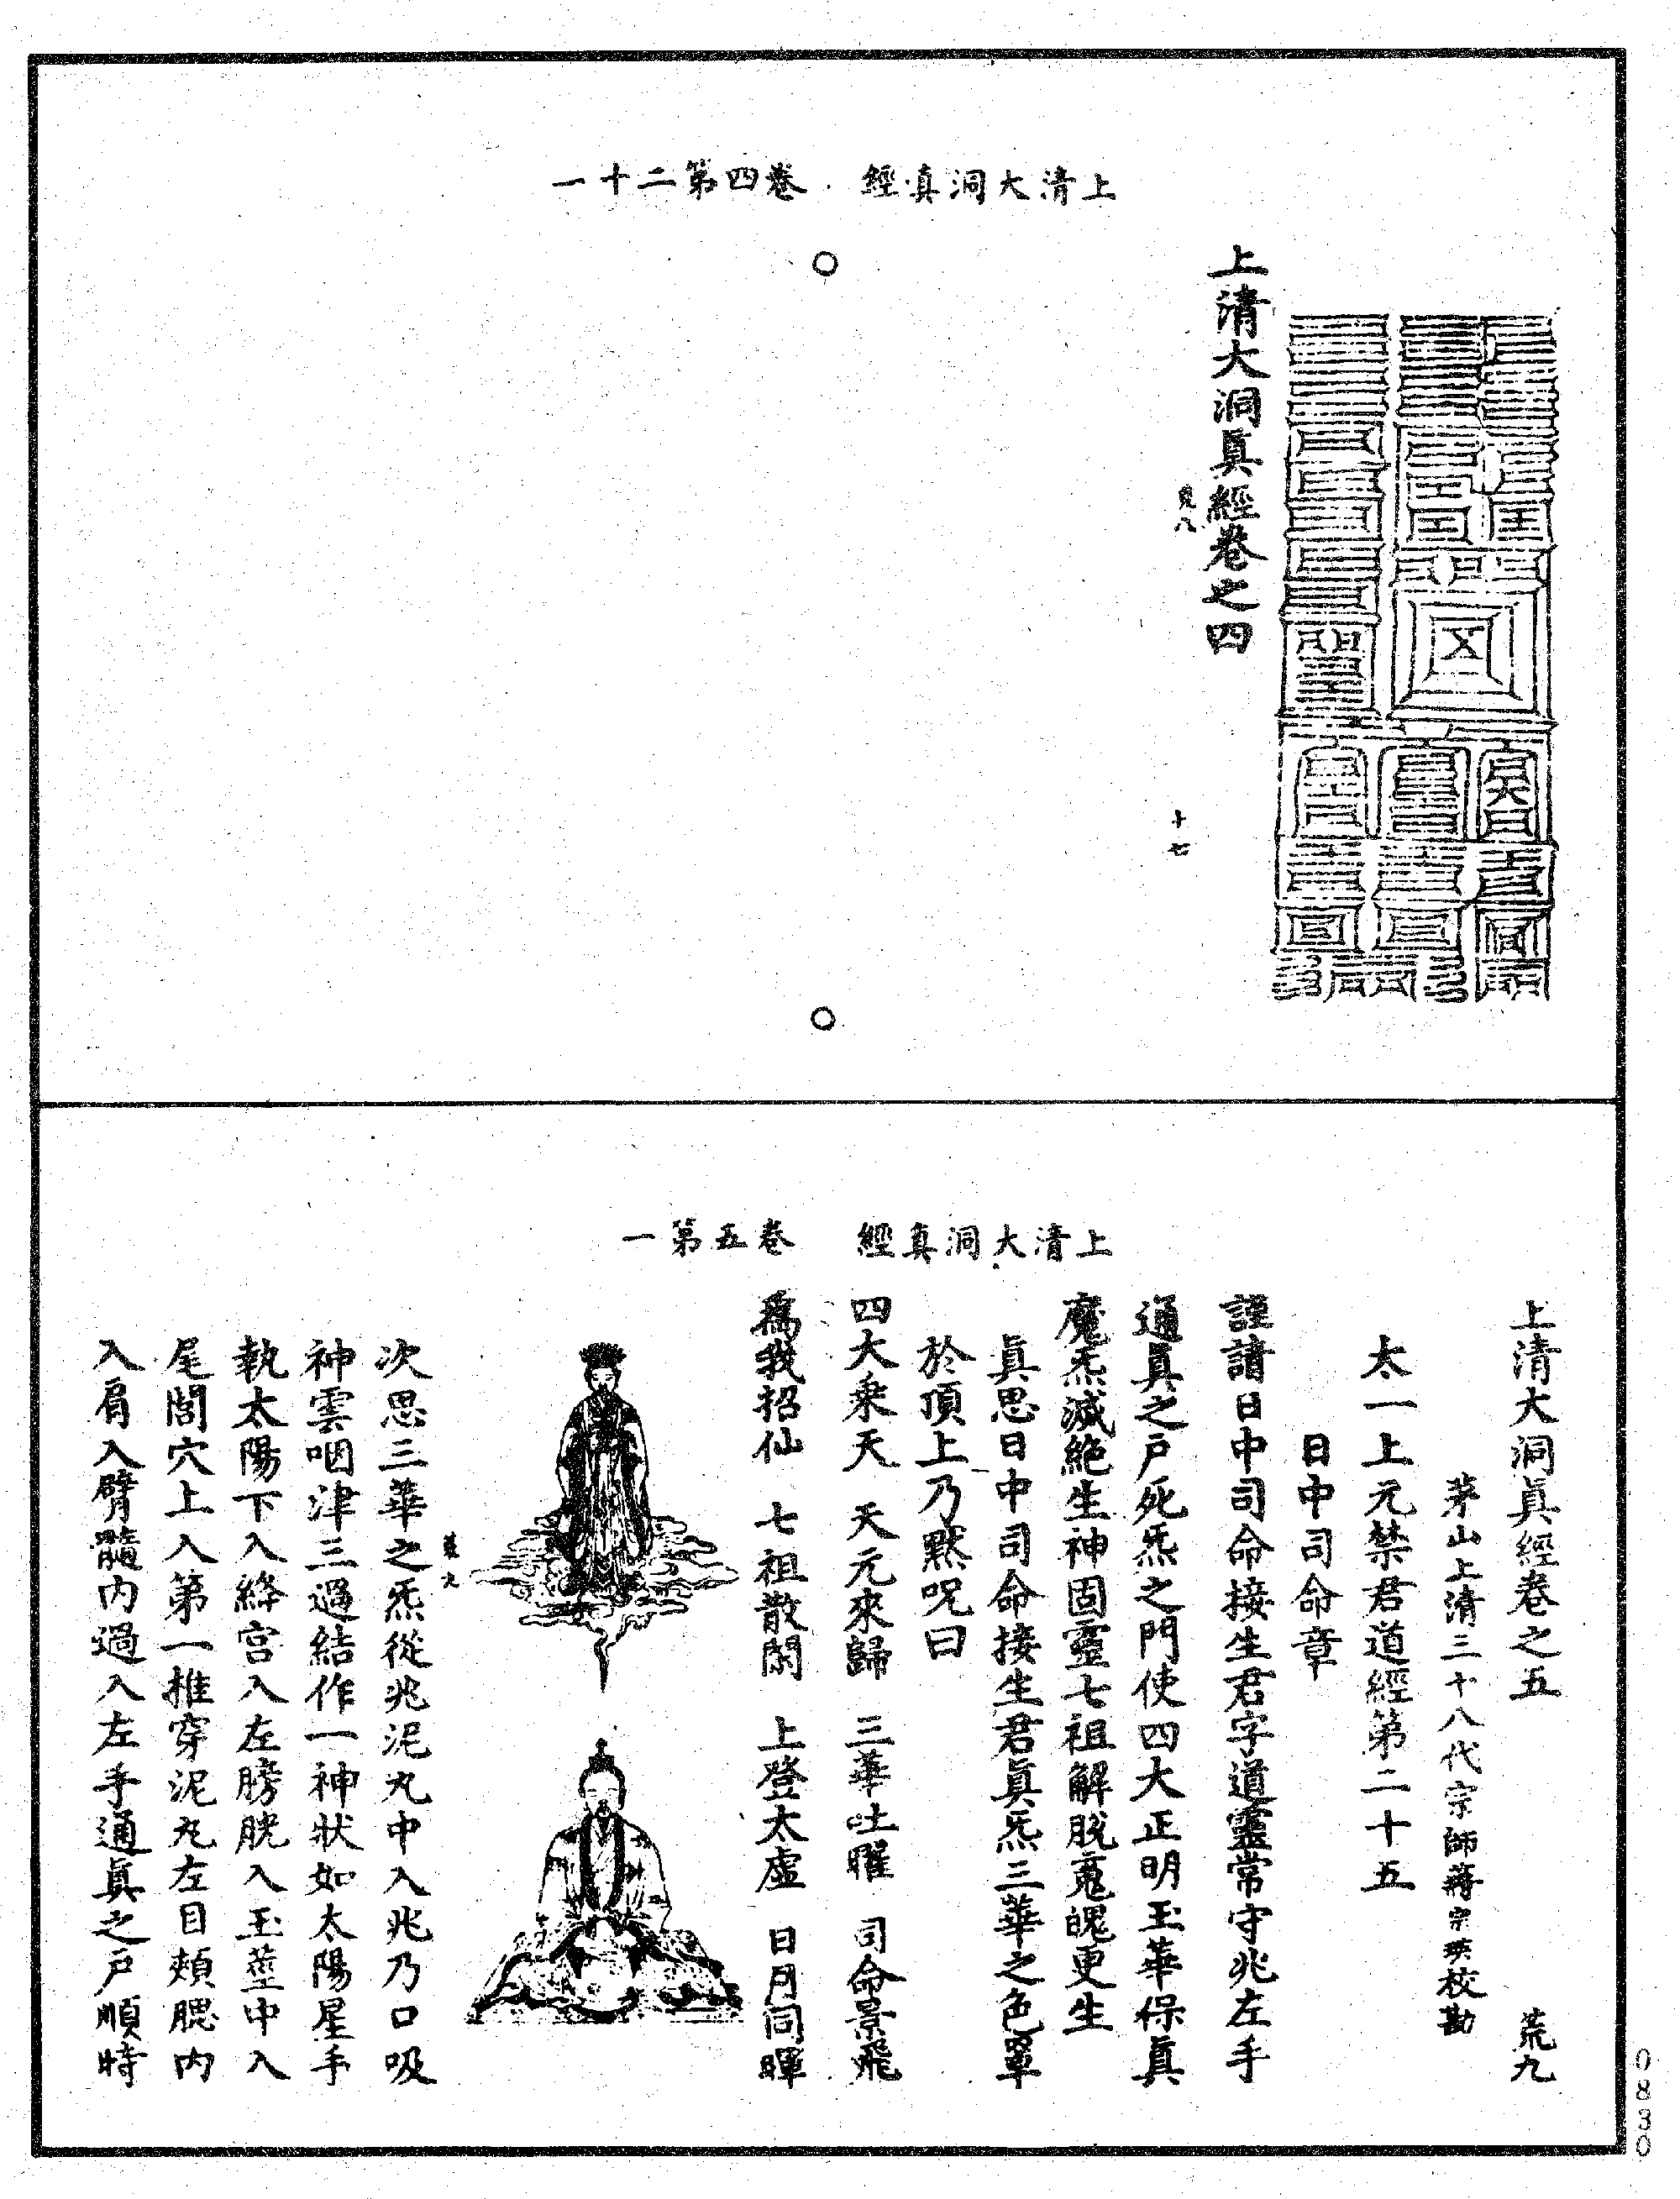 上清大洞真經 卷四第二十一
上清大洞眞經卷之四
荒八 十七
上清大洞真經 卷五第一
上清大洞眞經卷之五 荒九
茅山上清三十八代宗師蔣宗瑛校勘
太一上元禁君道經第二十五
日中司命章
謹請日中司命接生君字道靈常守兆左手
通眞之戶死炁之門使四大正明玉華保眞
魔炁滅絕生神固靈七祖解脫䰟魄更生
眞思日中司命接生君眞炁三華之色罩
於頂上乃黙呪曰
四大乘天 天元來歸 三華吐曜 司命景飛
爲我招仙 七祖散閞 上登太虛 日月同暉
荒九
次思三華之炁從兆泥丸中入兆乃口吸
神雲咽津三過結作一神狀如太陽星手
執太陽下入絳宮入左膀胱入玉莖中入
尾閭穴上入第一椎穿泥丸左目頰腮內
入肩入臂髓內過入左手通眞之戶順時
0830